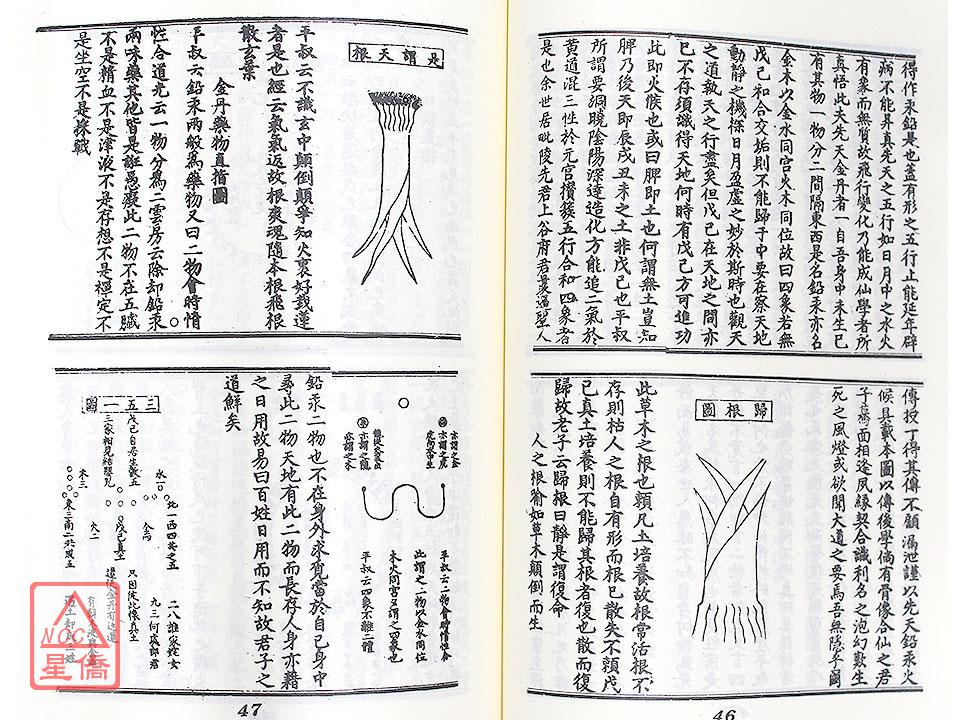 得作汞鉛是也蓋有形之五行止能延年辟
病不能昇真先天之五行如日月中之水火
有象而無質故飛行變化乃能成仙學者所
真悟此夫先天金丹者一自吾身中未生已
有其物一物分二間隔東西是名鉛汞亦名
金木以金水同宮火木同位故曰四象若無
戊己和合交姤則不能歸于中要在察天地
動靜之機探日月盈虛之妙於斯時也觀天
之道執天之行盡矣但戊己在天地之間亦
已不得須識得天地何時有戊己方可進功
此即火候也或曰脾即土也何謂無土豈知
脾乃後天即辰戌丑未之土非戊己也平叔
所謂要洞曉陰陽深達造化方能追二氣於
黃道混三性於元宮攢簇五行合和四象者
是也余世居毗陵先君上谷府君最遇聖人
傳授丁得其傳不顧漏泄謹以先天鉛汞火
候具載本圖以傳後學倘有骨像合仙之君
子驀面相逢夙緣契合識利名之泡幻歎生
死之風燈或欲聞大道之要爲吾無隱乎爾
歸根圖
此草木之根也賴凡土培養故根常活根不
存則枯人之根自有形而根已散矣不賴戊
己真土培養則不能歸其根者復也散而復
歸故老子云歸根曰靜是謂復命
人之根喻如草木顛倒而生
46
是謂天根
平叔云不識玄中顛倒顛爭知火裏好栽蓮
者是也經云氣氣返故根爽魂隨本根飛根
散玄葉
金丹藥物直指圖
平叔云鉛汞兩般爲藥物又曰二物會時情
性合道光云一物分爲二雲房云除却鉛汞
兩味藥其他皆是誑愚癡此二物不在五臟
不是精血不是津液不是存想不是禪定不
是坐空不是採戰
亦謂之金
亦謂之虎
亦謂之龍
亦謂之木
平叔云二物會時情性合
此謂之二物以金水同位
木火同宮又謂之四象也
平叔云四象不離二體
鉛汞一物也不在身外求覓當於自己身中
尋此二物天地有此二物而長存人身亦藉
之日用故易曰百姓日用而不知故君子之
道鮮矣
三五一圖
戊己自居生數五
三家相見結嬰兒
北一西四共之五
水一
金四
戊己真土
木三
火二
東三南二共成五
二八誰家姹女
九三何處郎君
只因彼此懷真土
遂使金丹有返還
47
NCC
星僑